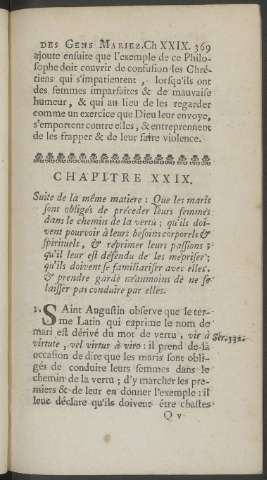 DES GENS MARIEZ. Ch XXIX. 369
ajoute ensuite que l'exemple de ce Philo-
sophe doit couvrir de confusion les Chré-
tiens qui s'impatientent, lorsqu'ils ont
des femmes imparfaites & de mauvaise
humeur, & qui au lieu de les regarder
comme un exercice que Dieu leur envoye,
s'emportent contre elles, & entreprennent
de les frapper & de leur faire violence.
CHAPITRE XXIX.
Suite de la même matiere: Que les maris
sont obligés de préceder leurs femmes
dans le chemin de la vertu; qu'ils doi-
vent pourvoir à leurs besoins corporels &
spirituels, & réprimer leurs passions;
qu'il leur est défendu de les mépriser;
qu'ils doivent se familiariser avec elles,
& prendre garde néanmoins de ne se
laisser pas conduire par elles.
1. SAint Augustin observe que le ter-
me Latin qui exprime le nom de
mari est dérivé du mot de vertu, vir à
virtute, vel virtus à viro: il prend de-là
Ser. 332.
occasion de dire que les maris sont obli-
gés de conduire leurs femmes dans le
chemin de la vertu; d'y marcher les pre-
miers & de leur en donner l'exemple: il
leur déclare qu'ils doivent être chastes
Q v